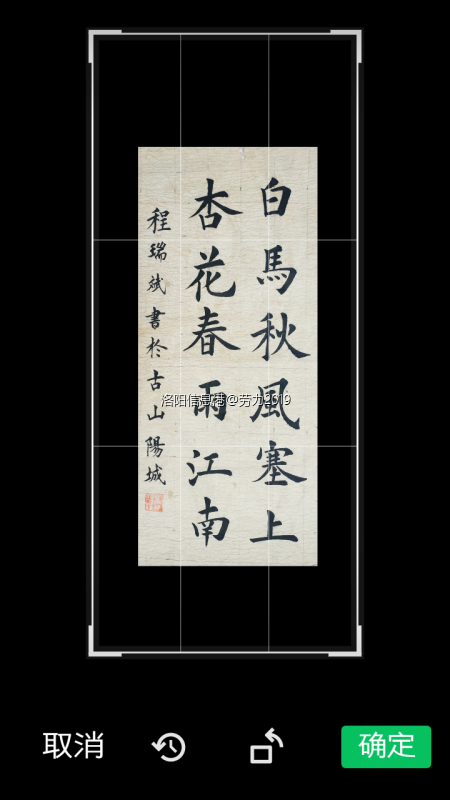 白馬秋風塞上
杏花春雨江南
程瑞斌書於古山陽城
洛阳信息港@劳力2019
取消
确定